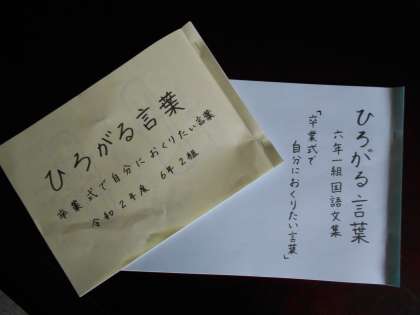 ひろがる言葉
卒業式で自分におくりたい言葉
令和2年度 6年2組
ひろがる言葉
六年一組国語文集
「卒業式で
自分におくりたい言葉」